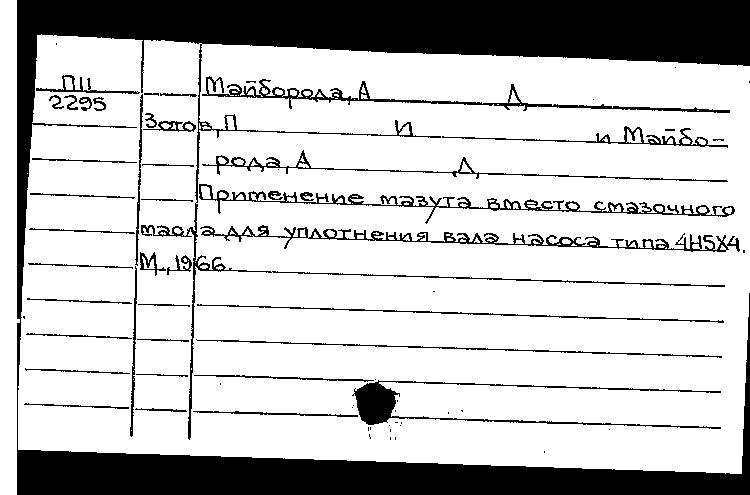 П11 Майборода, А Д,
2295
Зотов, П И и Майбо-
рода, А Д,
Применение мазута вместо смазочного
масла для уплотнения вала насоса типа 4Н5Х4.
М., 1966.